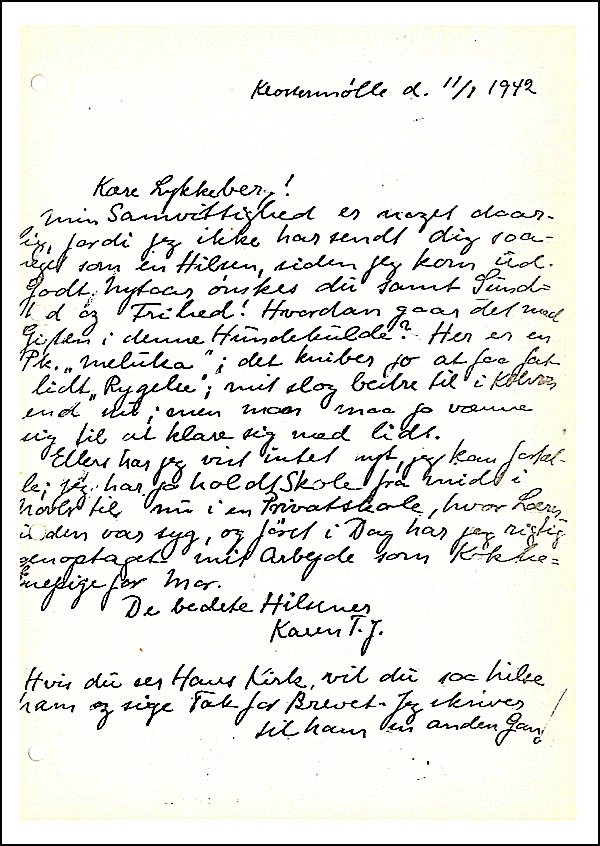 Klostermølle d. 11/1 1942
Kære Lykkeberg!
Min Samvittighed er noget daar-
lig, fordi jeg ikke har sendt dig saa-
meget som en Hilsen, siden jeg kom ud.
Godt Nytaar ønskes du samt Sund-
d og Frihed! Hvordan gaar det med
Gigten i denne Hundekulde? Her er en
Pk. "Meluka"; det kniber jo at faa fat
lidt "Rygelse"; mit slog bedre til i
end nu; men man maa jo vænne
sig til at klare sig med lidt.
Ellers har jeg vist intet nyt, jeg kan fortæl-
le; jeg har jo holdt Skole fra midt i
Novbr til nu i en Privatskole, hvor Lærer-
inden var syg, og først i Dag har jeg rigtig
genoptaget mit Arbejde som Køkke-
nepige for Mor.
De bedste Hilsner
Karen T. J.
Hvis du ser Hans Kirk, vil du saa hilse
ham og sige Tak for Brevet. Jeg skriver
til ham en anden Gang!